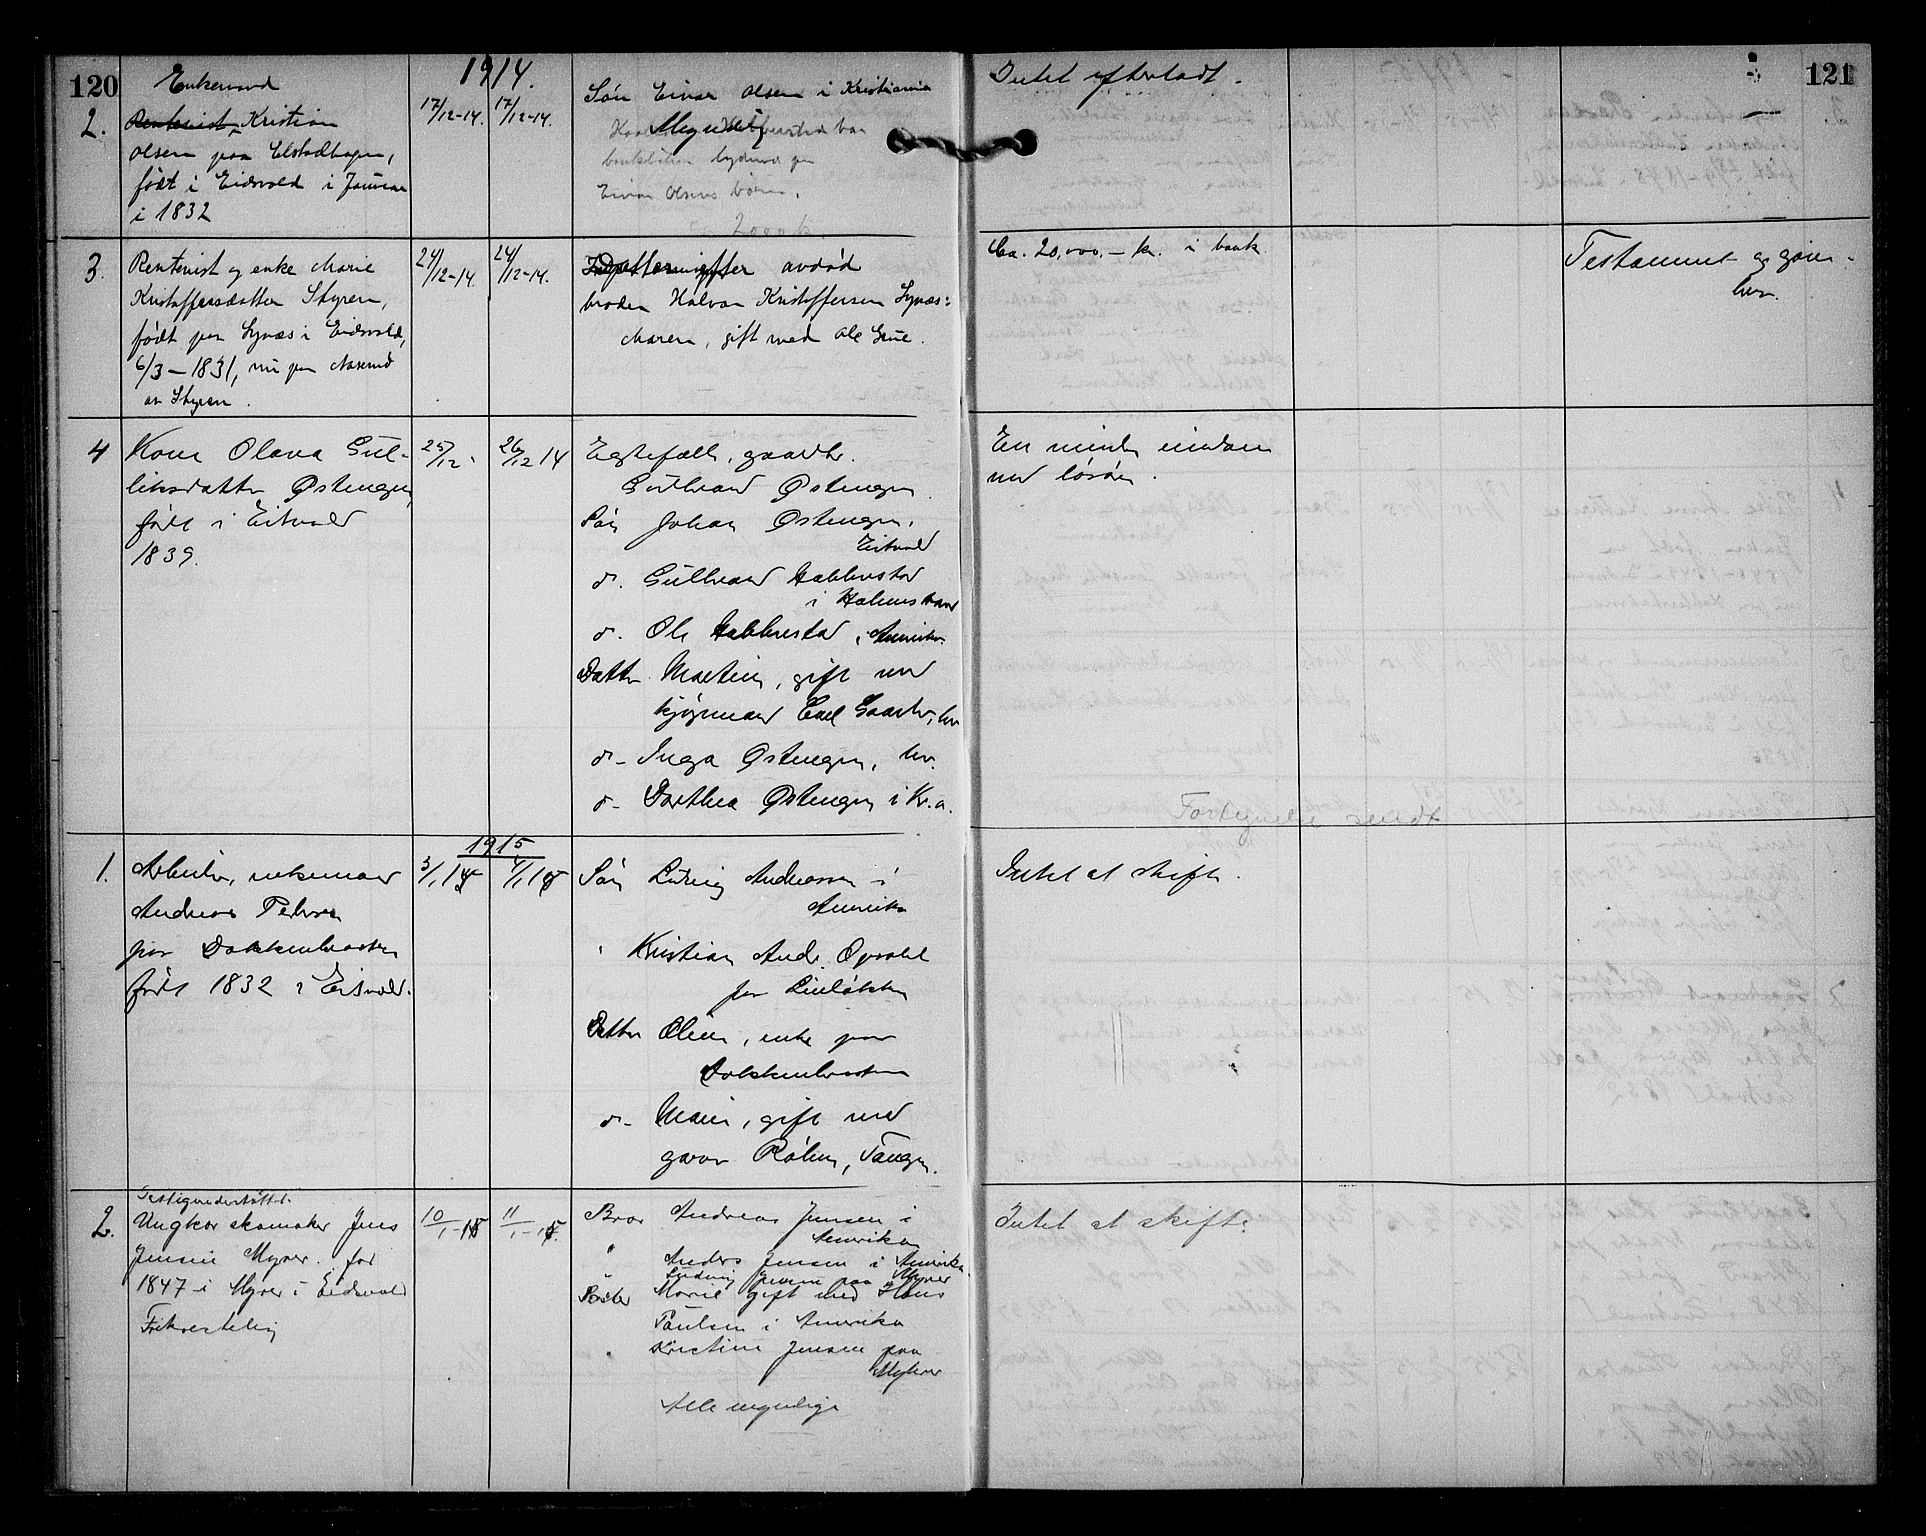 120
1914.
2.
Enkemand
Rentenist Kristian
Olsen paa Elstadhagen,
født i Eidsvold i Januar
i 1832
17/12-14.
17/12-14.
Søn Einar Olsen i Kristiania
Myndig
bankbøker lydende paa
Einar Olsens børn.
2000 k.
Intet efterladt.
121
3.
Rentenist og enke Marie
Kristoffersdatter Styren,
født paa Synæs i Eidsvold,
6/3-1831, nu paa
av Styren.
24/12-14.
24/12-14.
Datter efter avdød
broder Halvor Kristoffersen Synæs:
Maren, gift med Ole
Ca. 20,000.- kr. i bank.
Testamente og gjen-
lev.
4
Kone Olava Gul-
liksdatter Østengen,
født i Eidsvold
1839.
25/12.
26/12 14
Egtefælle, gaardbr.
Gulbrand Østengen.
Søn Johan Østengen,
Eidsvold
d. Gulbrand Habberstad
i Holmestrand
d. Ole Habberstad, Amerika
Datter Martine, gift med
kjøpmand Carl Gaarder, her
d- Inga Østengen, her.
d- Dorthea Østengen i Kr.a.
En mindre eiendom
med løsøre.
Fortegnelse sendt
1915
1.
Arbeider, enkemand
Andreas Pedersen
paa Dokkenbraaten
født 1832 i Eidsvold.
3/1 15
4/1 15
Søn Ludvig Andreassen i
Amerika
" Kristian Andr. Opsahl
paa
Datter Oline, enke paa
Dokkenbraaten
d- Marie, gift med
Røhne, Tangen.
Intet at skifte.
2.
Fattigunderstøttet.
Ungkar skomaker Jens
Jensen Myrer. før
1847 i Myrer i Eidsvold
10/1-15
11/1-15.
Bror Andreas Jensen i
Amerika
" Anders Jensen i Amerika.
" Ludvig Jensen paa Myrer
Søster Marie gift med Hans
Paulsen i Amerika
" Kristine Jensen paa
Myhrer
Alle myndige
Intet at skifte